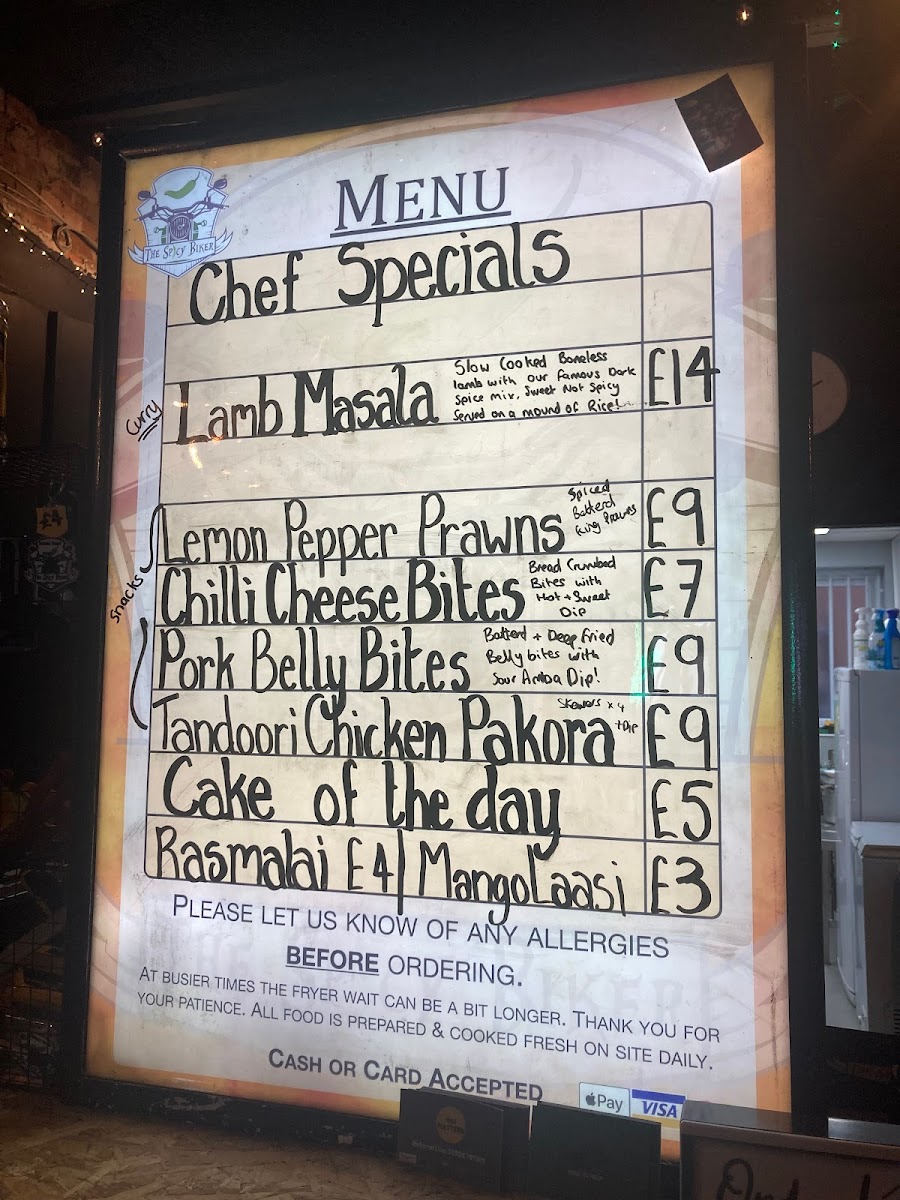 THE SPICY BIKER
MENU
Chef Specials
Curry
Lamb Masala
Slow Cooked Boneless
lamb with our famous Dark
Spice mix, Sweet Not Spicy
Served on a mound of Rice!
£14
Snacks
Lemon Pepper Prawns
Spiced
Batterd
King Prawns
£9
Chilli Cheese Bites
Bread Crumbed
Bites with
Hot + Sweet
Dip
£7
Pork Belly Bites
Batterd + Deep fried
Belly bites with
Sour Amba Dip!
£9
Tandoori Chicken Pakora
Skewers x 4
+ Dip
£9
Cake of the day £5
Rasmalai £4 | Mango Laasi £3
PLEASE LET US KNOW OF ANY ALLERGIES
BEFORE ORDERING.
AT BUSIER TIMES THE FRYER WAIT CAN BE A BIT LONGER. THANK YOU FOR
YOUR PATIENCE. ALL FOOD IS PREPARED & COOKED FRESH ON SITE DAILY.
CASH OR CARD ACCEPTED
Pay
VISA
£4